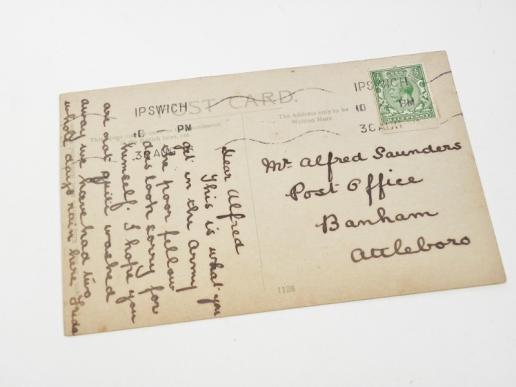 POST CARD.
IPSWICH
PM
IPSWICH
PM
The Address only to be
Written Here
Dear Alfred
This is what you
get in the Army
the poor fellow
does look sorry for
himself. I hope you
are not quite washed
away we have had two
whole days rain here
Mr Alfred Saunders
Post Office
Banham
Attleboro